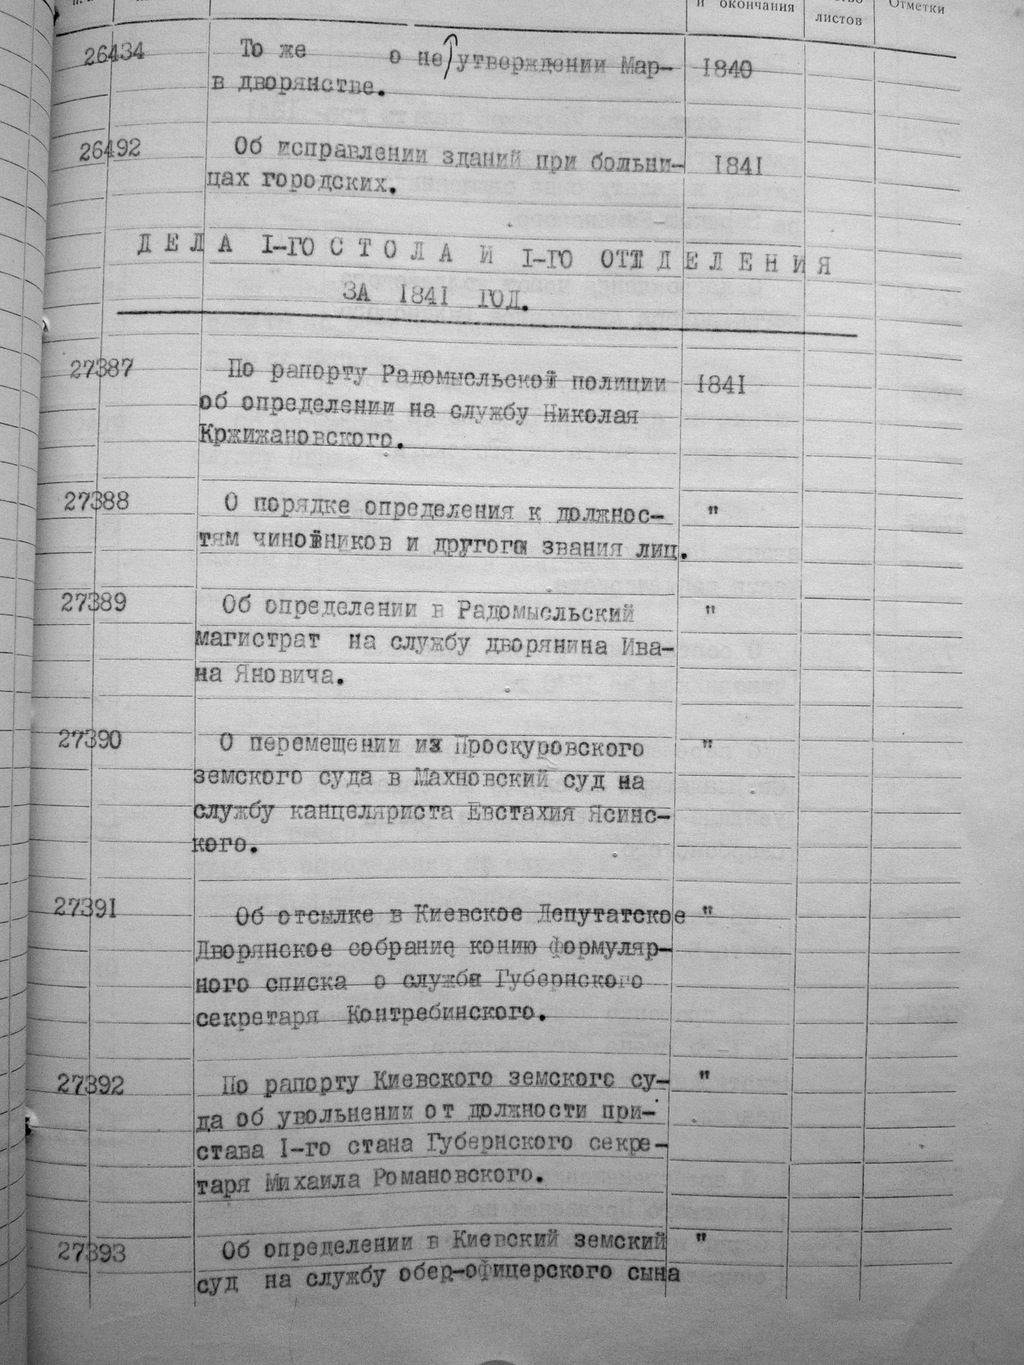 и окончания
листов
Отметки
26434 То же о не утверждении Мар- 1840
в дворянстве.
26492 Об исправлении зданий при больни- 1841
цах городских.
ДЕЛА I-ГО СТОЛА И I-ГО ОТДЕЛЕНИЯ
ЗА 1841 ГОД.
27387 По рапорту Радомысльской полиции 1841
об определении на службу Николая
Кржижановского.
27388 О порядке определения к должнос- "
тям чиновников и другого звания лиц.
27389 Об определении в Радомысльский "
магистрат на службу дворянина Ива-
на Яновича.
27390 О перемещении из Проскуровского "
земского суда в Махновский суд на
службу канцеляриста Евстахия Ясинс-
кого.
27391 Об отсылке в Киевское Депутатское "
Дворянское собрание копию формуляр-
ного списка о службе Губернского
секретаря Контребинского.
27392 По рапорту Киевского земского су- "
да об увольнении от должности при-
става I-го стана Губернского секре-
таря Михаила Романовского.
27393 Об определении в Киевский земский "
суд на службу обер-офицерского сына